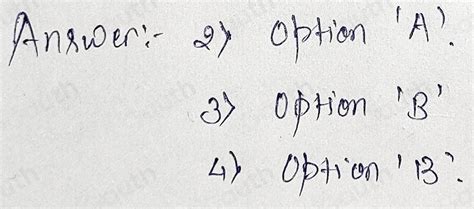 Answer:- 2) Option 'A'.
3) Option 'B'
4) Option 'B'.